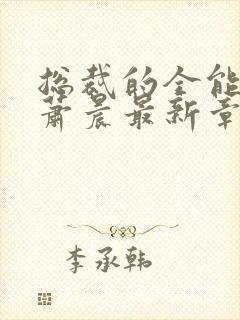 总裁的全能
萧晨最新章
李承韩